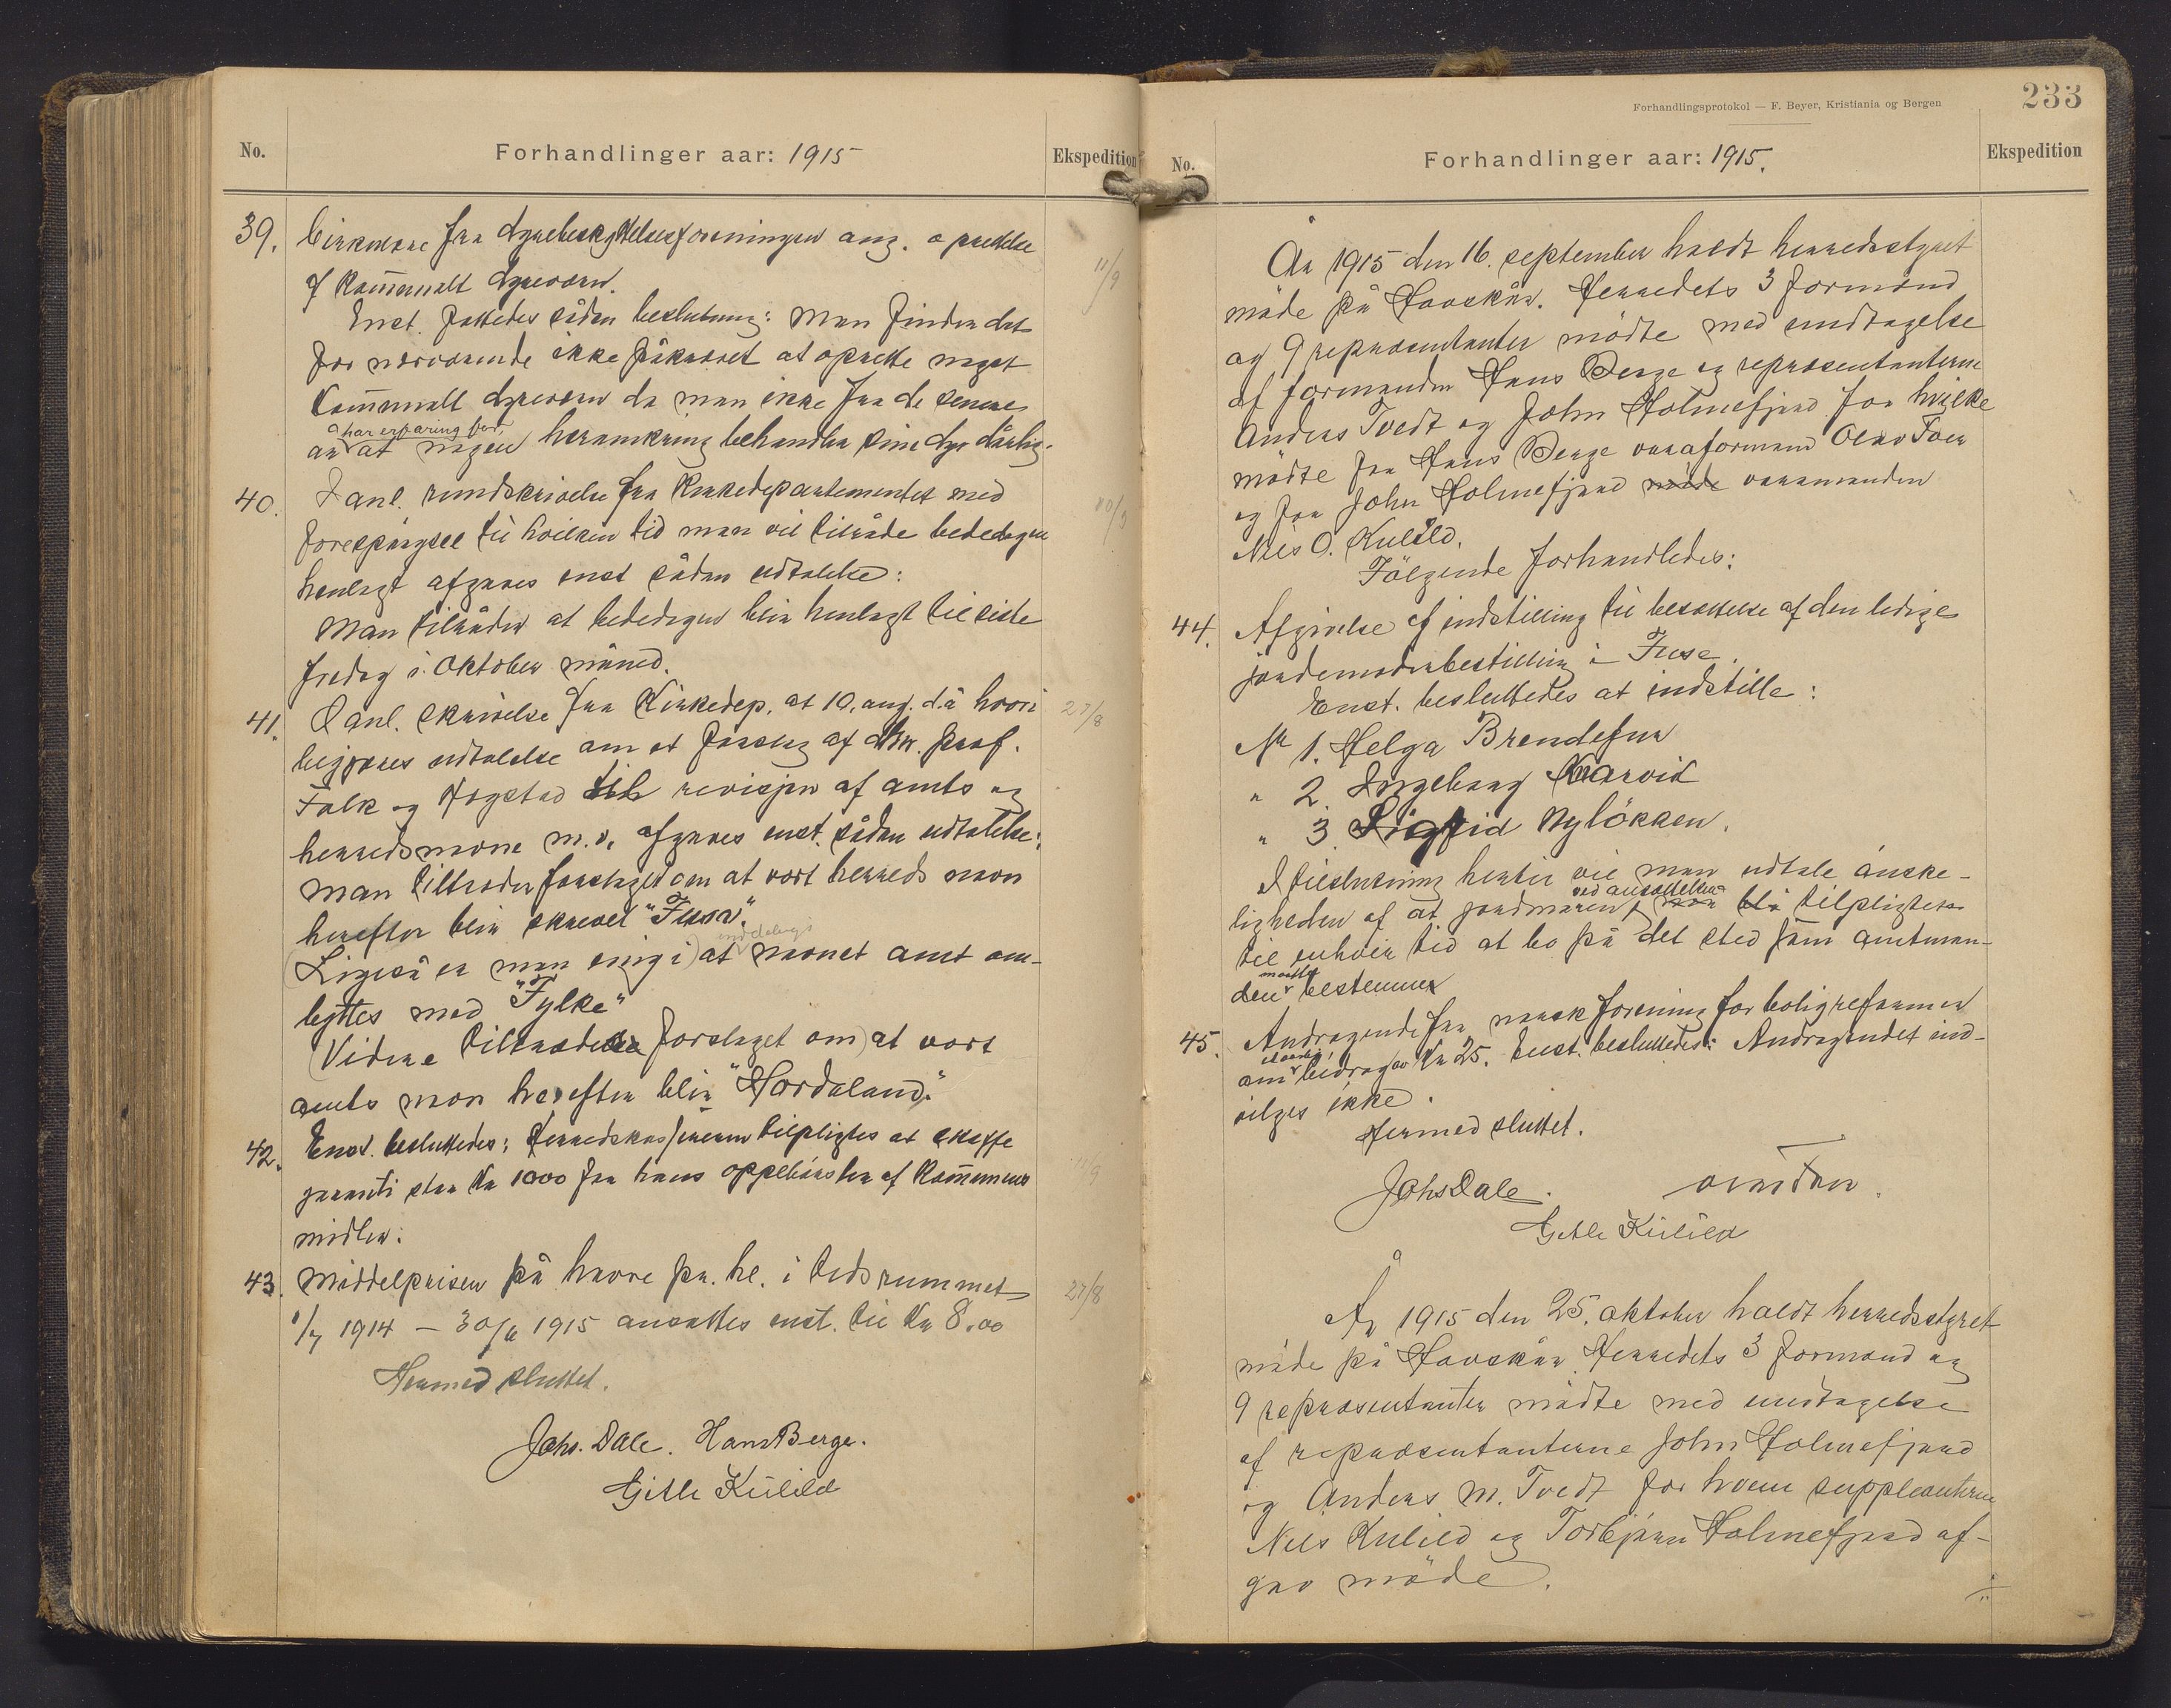 No. Forhandlinger aar: 1915 Ekspedition
39. Cirkulære fra dyrebeskyttelsesforeningen ang. oprettelse
af kommunalt dyrevern. 11/9
Enst. fattedes sådan beslutning: Man finder det
for nærværende ikke påkrævet at oprette noget
kommunalt dyrevern da man ikke fra de senere
har erfaring for,
år at nogen heromkring behandler sine dyr dårlig.
40. I anl. rundskrivelse fra Kirkedepartementet med 10/9
forespørgsel til hvilken tid man vil tilråde bededagen
henlagt afgaves enst sådan udtalelse:
Man tilråder at bededagen blir henlagt til siste
fredag i oktober måned.
41. I anl. skrivelse fra Kirkedep. at 10. aug. d.å hvori 27/8
begjæres udtalelse om et forslag af d'hrr. prof.
Falk og Hægstad til revisjon af amts og
herredsnavne m.v. afgaves enst. sådan udtalelse:
Man tiltræder forslaget om at vort herreds navn
herefter blir skrevet "Fusa".
inddelings
(Ligeså er man enig i) at navnet amt om-
byttes med "Fylke"
(Videre tiltrædes forslaget om) at vort
amts navn herefter blir "Hordaland."
42. Enst. besluttedes: Herredskassereren tilpligtes at skaffe
garanti stor kr 1000 for hans oppebørsler af kommunens
midler.
43. Middelprisen på havre pr. hl. i tidsrummet 27/8
1/7 1914 – 30/6 1915 ansattes enst. til kr 8.00
Hermed sluttet.
Johs. Dale. Hans Berge.
Gitle Kulild
Forhandlingsprotokol — F. Beyer, Kristiania og Bergen 233
No. Forhandlinger aar: 1915. Ekspedition
År 1915 den 16. september holdt herredsstyret
møde på Havskår. Herredets 3 formænd
og 9 repræsentanter mødte med undtagelse
af formanden Hans Berge og repræsentanterne
Anders Tvedt og John Holmefjord for hvilke
mødte for Hans Berge varaformand Olav
og for John Holmefjord møde varamanden
Nils O. Kulild.
Følgende forhandledes:
44. Afgivelse af indstilling til besættelse af den ledige
jordemoderbestilling i Fuse.
Enst. besluttedes at indstille:
Nr 1. Helga Brendefur
" 2. Ingeborg
" 3. Sigrid Nyløkken.
I tilslutning hertil vil man udtale ønske-
ved ansættelsen
ligheden af at jordmoren blir tilpligtet
til enhver tid at bo på det sted som amtman-
måtte
den bestemme
45. Andragende fra norsk forening for boligreformer
om bidrag kr 25. Enst. besluttedes: Andragendet ind-
vilges ikke.
Hermed sluttet.
Johs Dale.
Gitle Kulild
År 1915 den 25. oktober holdt herredsstyret
møde på Havskår. Herredets 3 formænd og
9 repræsentanter mødte med undtagelse
af repræsentanterne John Holmefjord
og Anders M. Tvedt for hvem suppleanterne
Nils Kulild og Torbjørn Holmefjord af-
gav møde.